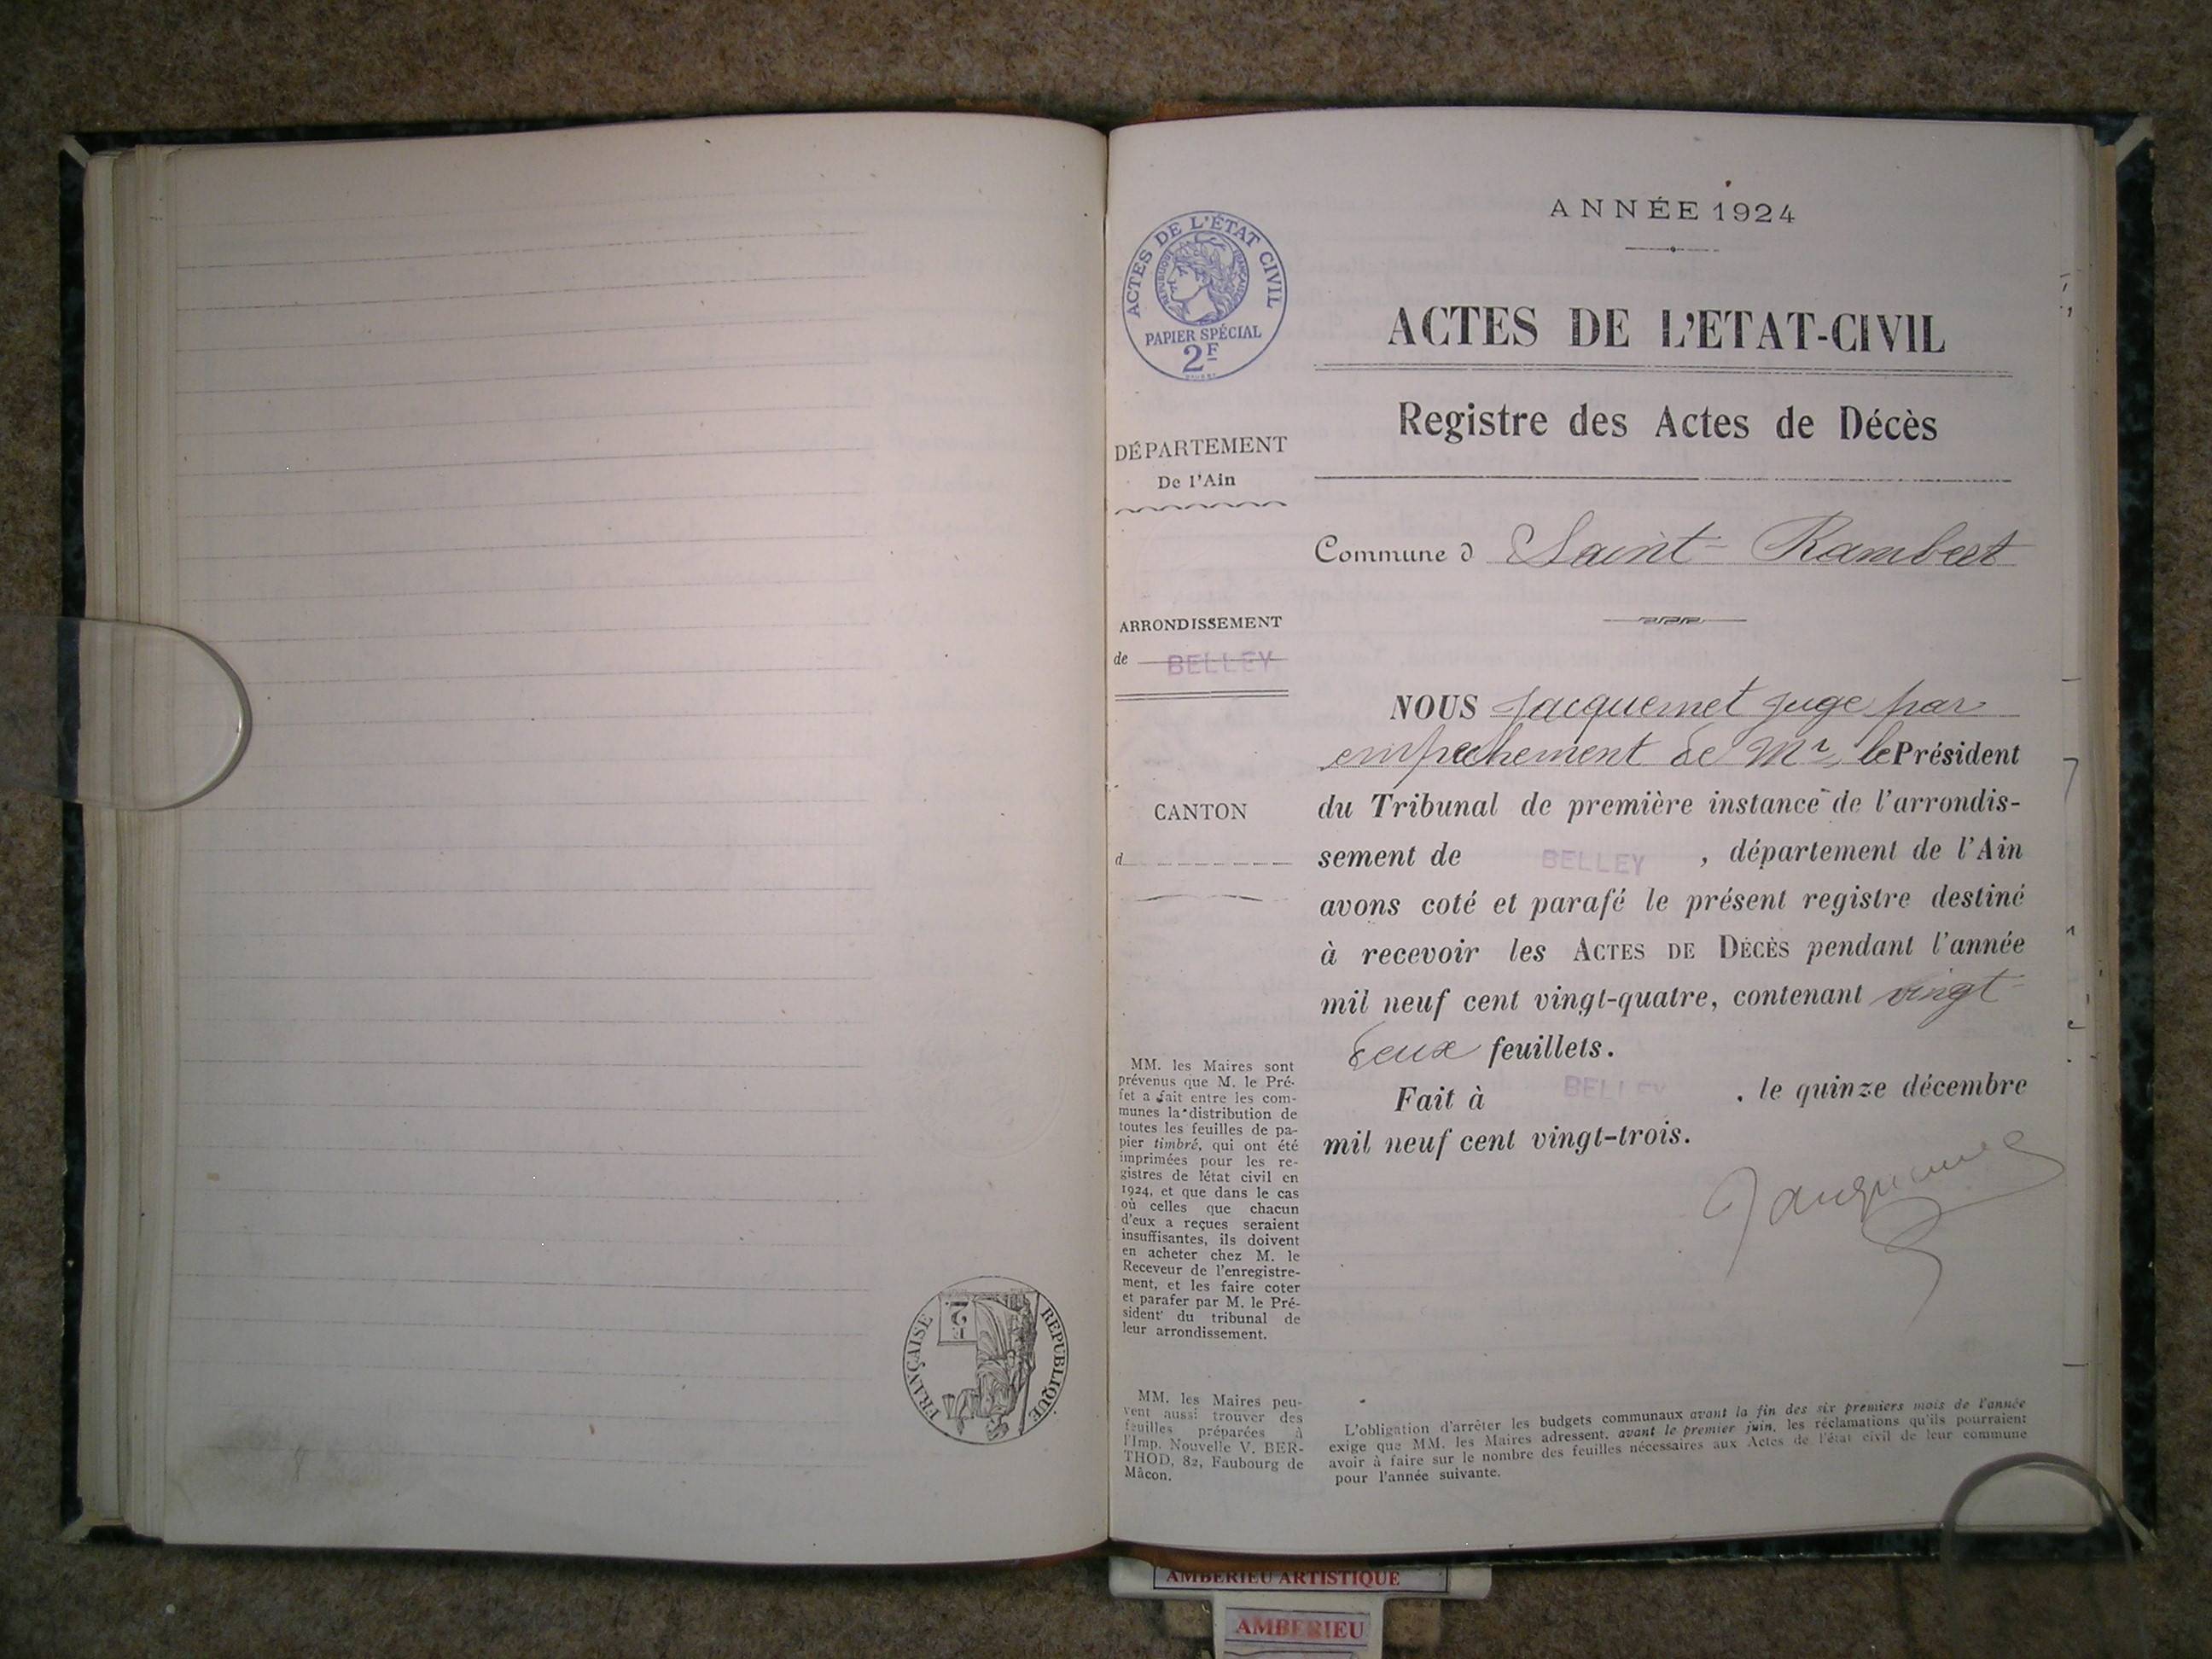 ANNÉE 1924
ACTES DE L'ÉTAT CIVIL
RÉPUBLIQUE FRANÇAISE
PAPIER SPÉCIAL
2F
ACTES DE L'ETAT-CIVIL
Registre des Actes de Décès
DÉPARTEMENT
De l'Ain
Commune d Saint-Rambert
ARRONDISSEMENT
de BELLEY
CANTON
d
NOUS Jacquemet juge par
empêchement de Mr le Président
du Tribunal de première instance de l'arrondis-
sement de BELLEY, département de l'Ain
avons coté et parafé le présent registre destiné
à recevoir les ACTES DE DÉCÈS pendant l'année
mil neuf cent vingt-quatre, contenant vingt-
deux feuillets.
Fait à BELLEY, le quinze décembre
mil neuf cent vingt-trois.
Jacquemet
MM. les Maires sont
prévenus que M. le Pré-
fet a fait entre les com-
munes la distribution de
toutes les feuilles de pa-
pier timbré, qui ont été
imprimées pour les re-
gistres de l'état civil en
1924, et que dans le cas
où celles que chacun
d'eux a reçues seraient
insuffisantes, ils doivent
en acheter chez M. le
Receveur de l'enregistre-
ment, et les faire coter
et parafer par M. le Pré-
sident du tribunal de
leur arrondissement.
MM. les Maires peu-
vent aussi trouver des
feuilles préparées à
l'Imp. Nouvelle V. BER-
THOD, 82, Faubourg de
Mâcon.
L'obligation d'arrêter les budgets communaux avant la fin des six premiers mois de l'année
exige que MM. les Maires adressent, avant le premier juin, les réclamations qu'ils pourraient
avoir à faire sur le nombre des feuilles nécessaires aux Actes de l'état civil de leur commune
pour l'année suivante.
RÉPUBLIQUE FRANÇAISE
2F
AMBERIEU ARTISTIQUE
AMBERIEU